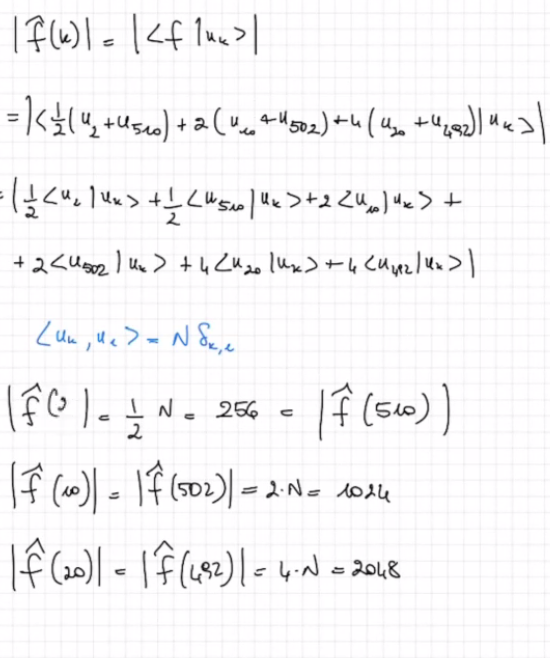 |f̂(k)| = |<f|u_k>|
= |<½(u_2+u_510) + 2(u_10+u_502) + 4(u_20+u_492)|u_k>|
= |½<u_2|u_k> + ½<u_510|u_k> + 2<u_10|u_k> +
+ 2<u_502|u_k> + 4<u_20|u_k> + 4<u_492|u_k>|
<u_k, u_l> = N δ_k,l
|f̂(2)| = ½ N = 256 = |f̂(510)|
|f̂(10)| = |f̂(502)| = 2·N = 1024
|f̂(20)| = |f̂(492)| = 4·N = 2048